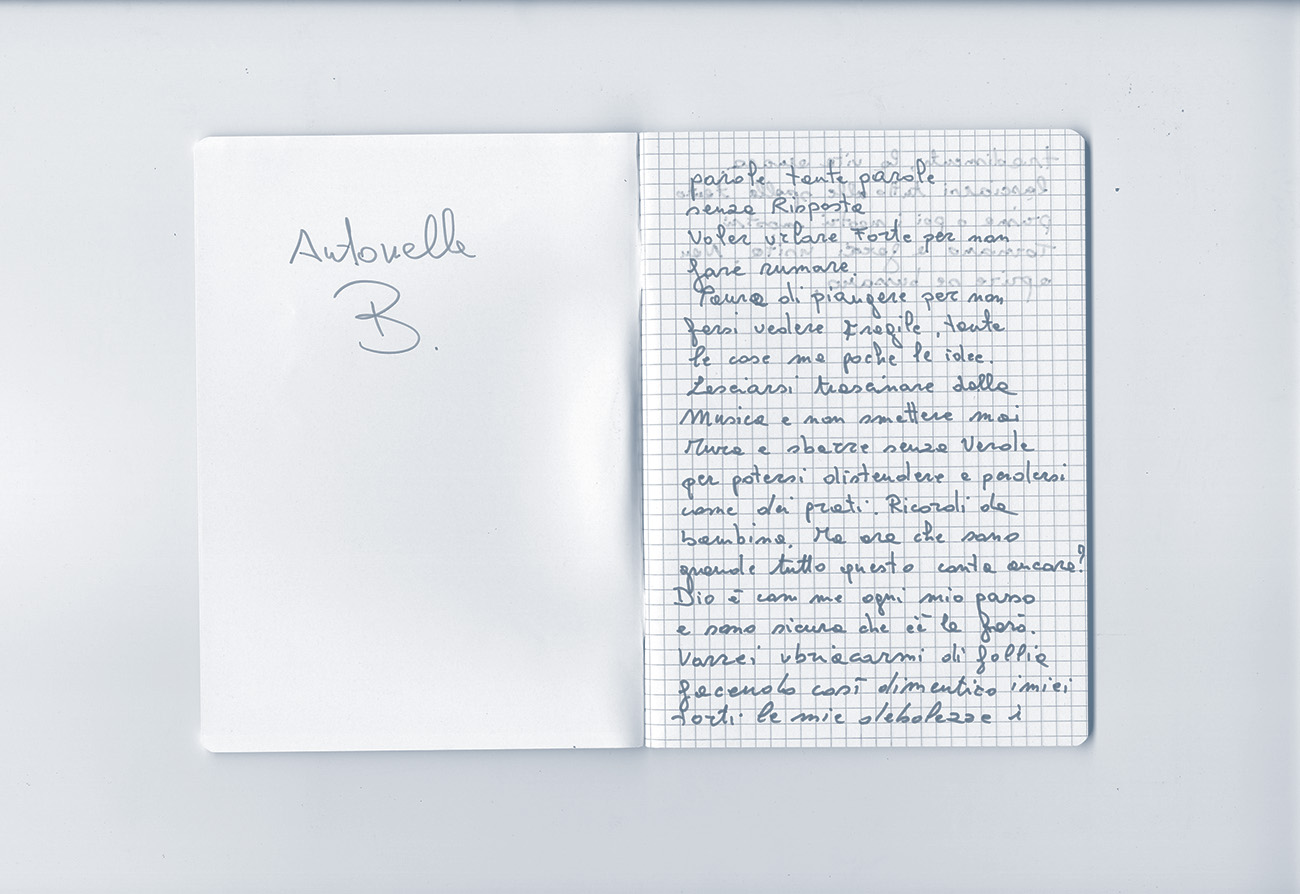 Antonella
B.
parole tante parole
senza Risposta
Voler urlare Forte per non
fare rumore.
Paura di piangere per non
farsi vedere Fragile, tante
le cose ma poche le idee.
Lasciarsi trascinare dalla
Musica e non smettere mai
Mura e sbarre senza Verde
per potersi distendere e perdersi
come dei prati. Ricordi da
bambina. Ma ora che sono
grande tutto questo conta ancora?
Dio è con me ogni mio passo
e sono sicura che c'è la farò.
Vorrei ubriacarmi di follia
facendo così dimentico i miei
torti. le mie debolezze i